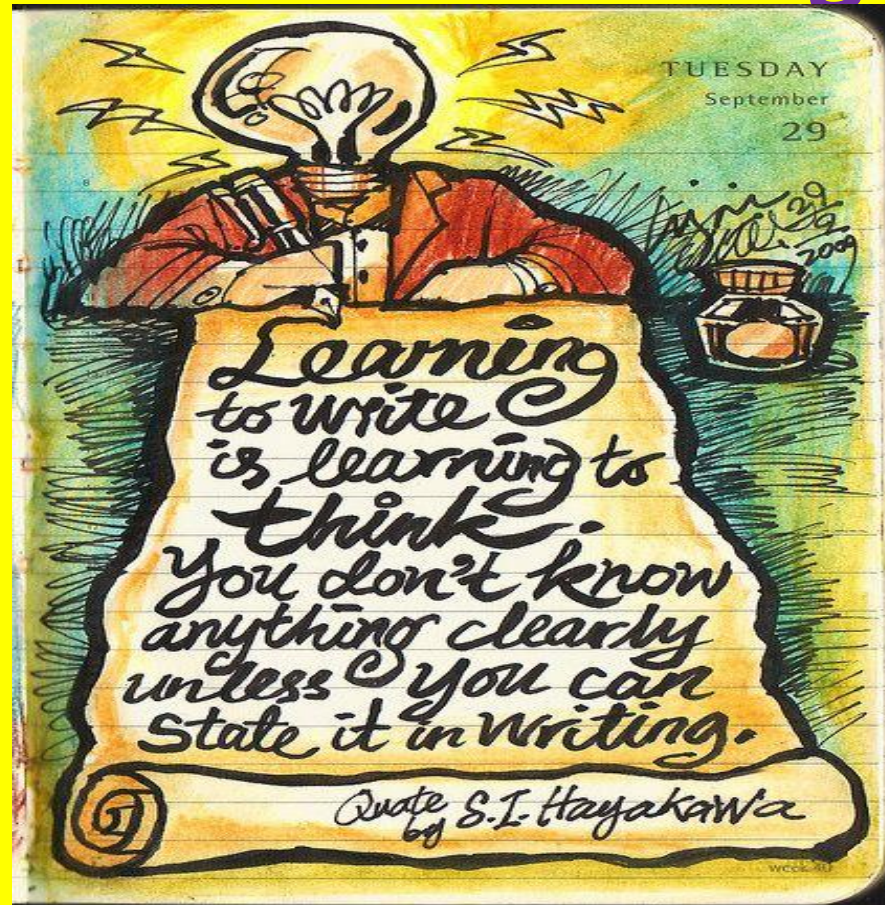 TUESDAY
September
29
29
9
2009
8
Learning
to write
is learning to
think.
You don't know
anything clearly
unless you can
State it in writing.
Quote
by S.I. Hayakawa